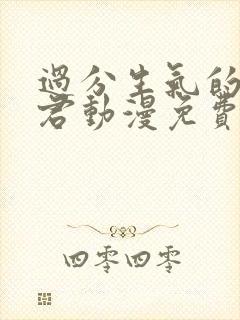 過分生氣的
君動漫免費
四零四零